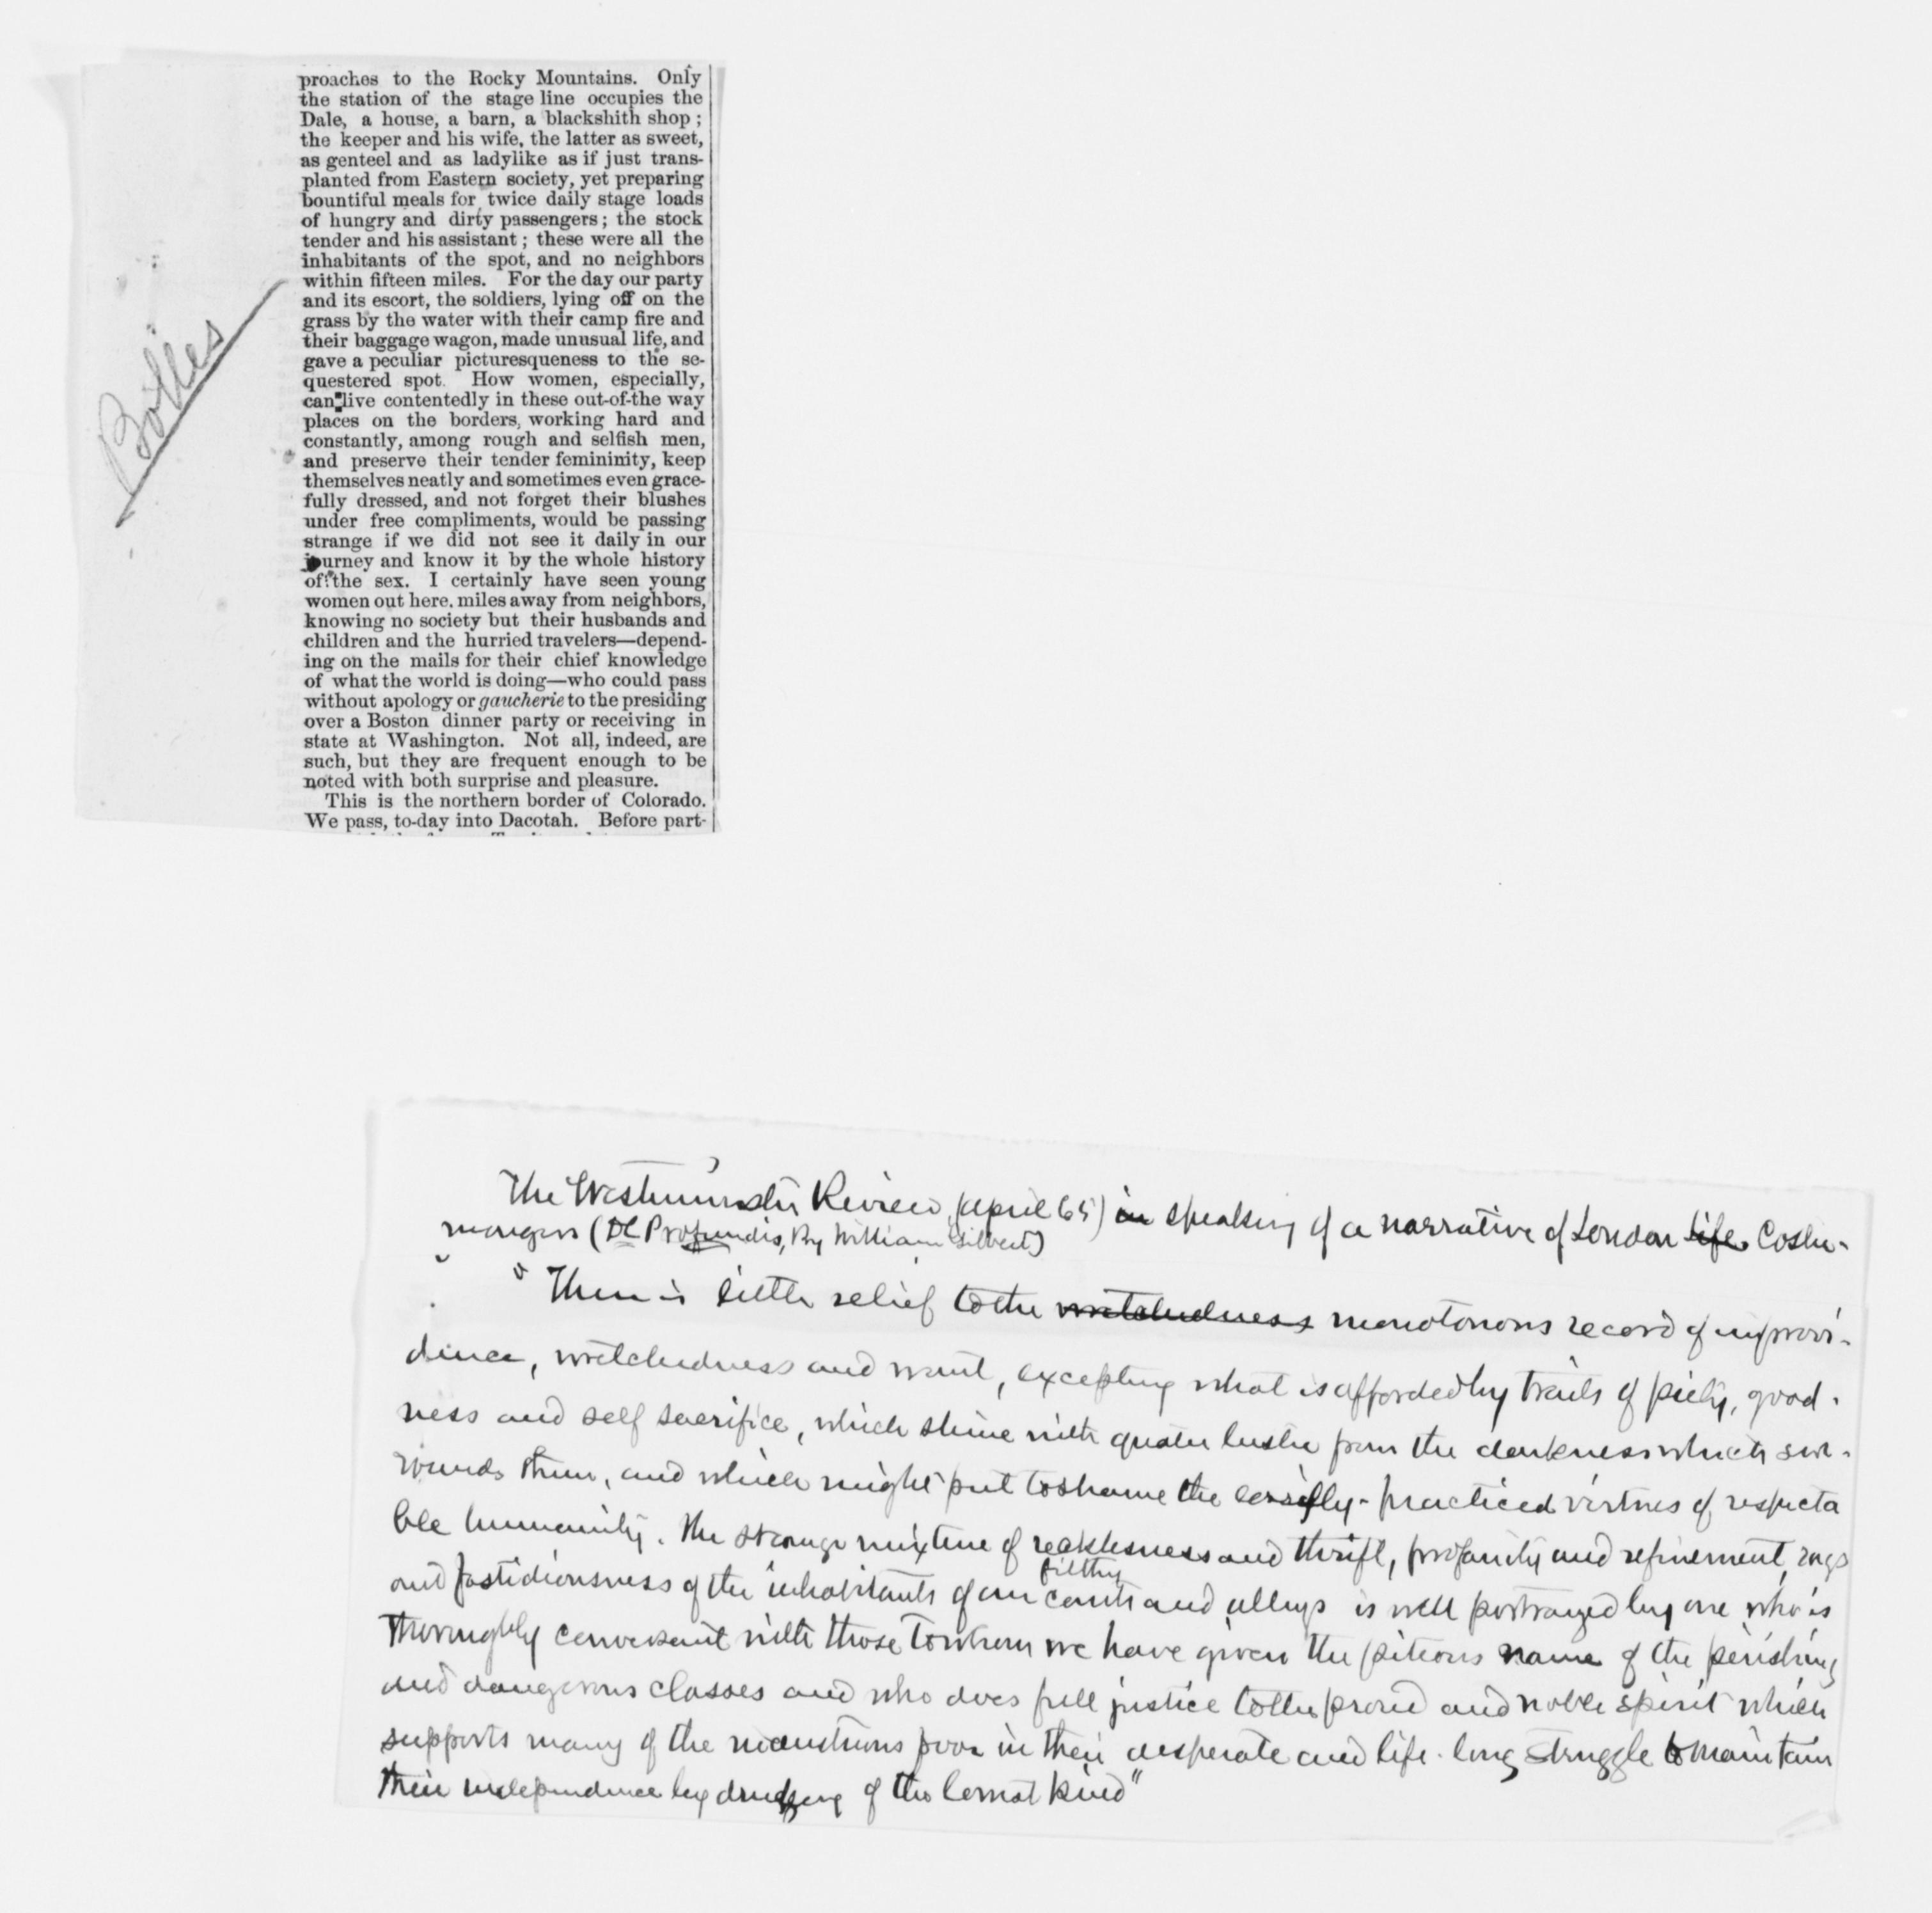 proaches to the Rocky Mountains. Only
the station of the stage line occupies the
Dale, a house, a barn, a blackshith shop ;
the keeper and his wife, the latter as sweet,
as genteel and as ladylike as if just trans-
planted from Eastern society, yet preparing
bountiful meals for twice daily stage loads
of hungry and dirty passengers ; the stock
tender and his assistant ; these were all the
inhabitants of the spot, and no neighbors
within fifteen miles. For the day our party
and its escort, the soldiers, lying off on the
grass by the water with their camp fire and
their baggage wagon, made unusual life, and
gave a peculiar picturesqueness to the se-
questered spot. How women, especially,
can live contentedly in these out-of-the way
places on the borders, working hard and
constantly, among rough and selfish men,
and preserve their tender femininity, keep
themselves neatly and sometimes even grace-
fully dressed, and not forget their blushes
under free compliments, would be passing
strange if we did not see it daily in our
journey and know it by the whole history
of the sex. I certainly have seen young
women out here, miles away from neighbors,
knowing no society but their husbands and
children and the hurried travelers—depend-
ing on the mails for their chief knowledge
of what the world is doing—who could pass
without apology or gaucherie to the presiding
over a Boston dinner party or receiving in
state at Washington. Not all, indeed, are
such, but they are frequent enough to be
noted with both surprise and pleasure.
This is the northern border of Colorado.
We pass, to-day into Dacotah. Before part-
Bolles
The Westminster Review (April 65) in speaking of a narrative of London life Coster-
mongers (De Profundis, By William Gilbert)
"There is little relief to the wretchedness monotonous record of improvi-
dence, wretchedness and want, excepting what is afforded by traits of piety, good-
ness and self sacrifice, which shine with greater lustre from the darkness which sur-
rounds them, and which might put to shame the easily-practiced virtues of respecta
ble humanity. The strange mixture of recklessness and thrift, profanity and refinement, rags
and fastidiousness of the inhabitants of our filthy courts and alleys is well portrayed by one who is
thoroughly conversant with those to whom we have given the piteous name of the perishing
and dangerous classes and who does full justice to the proud and noble spirit which
supports many of the industrious poor in their desperate and life-long struggle to maintain
their independence by drudgery of the lowest kind"